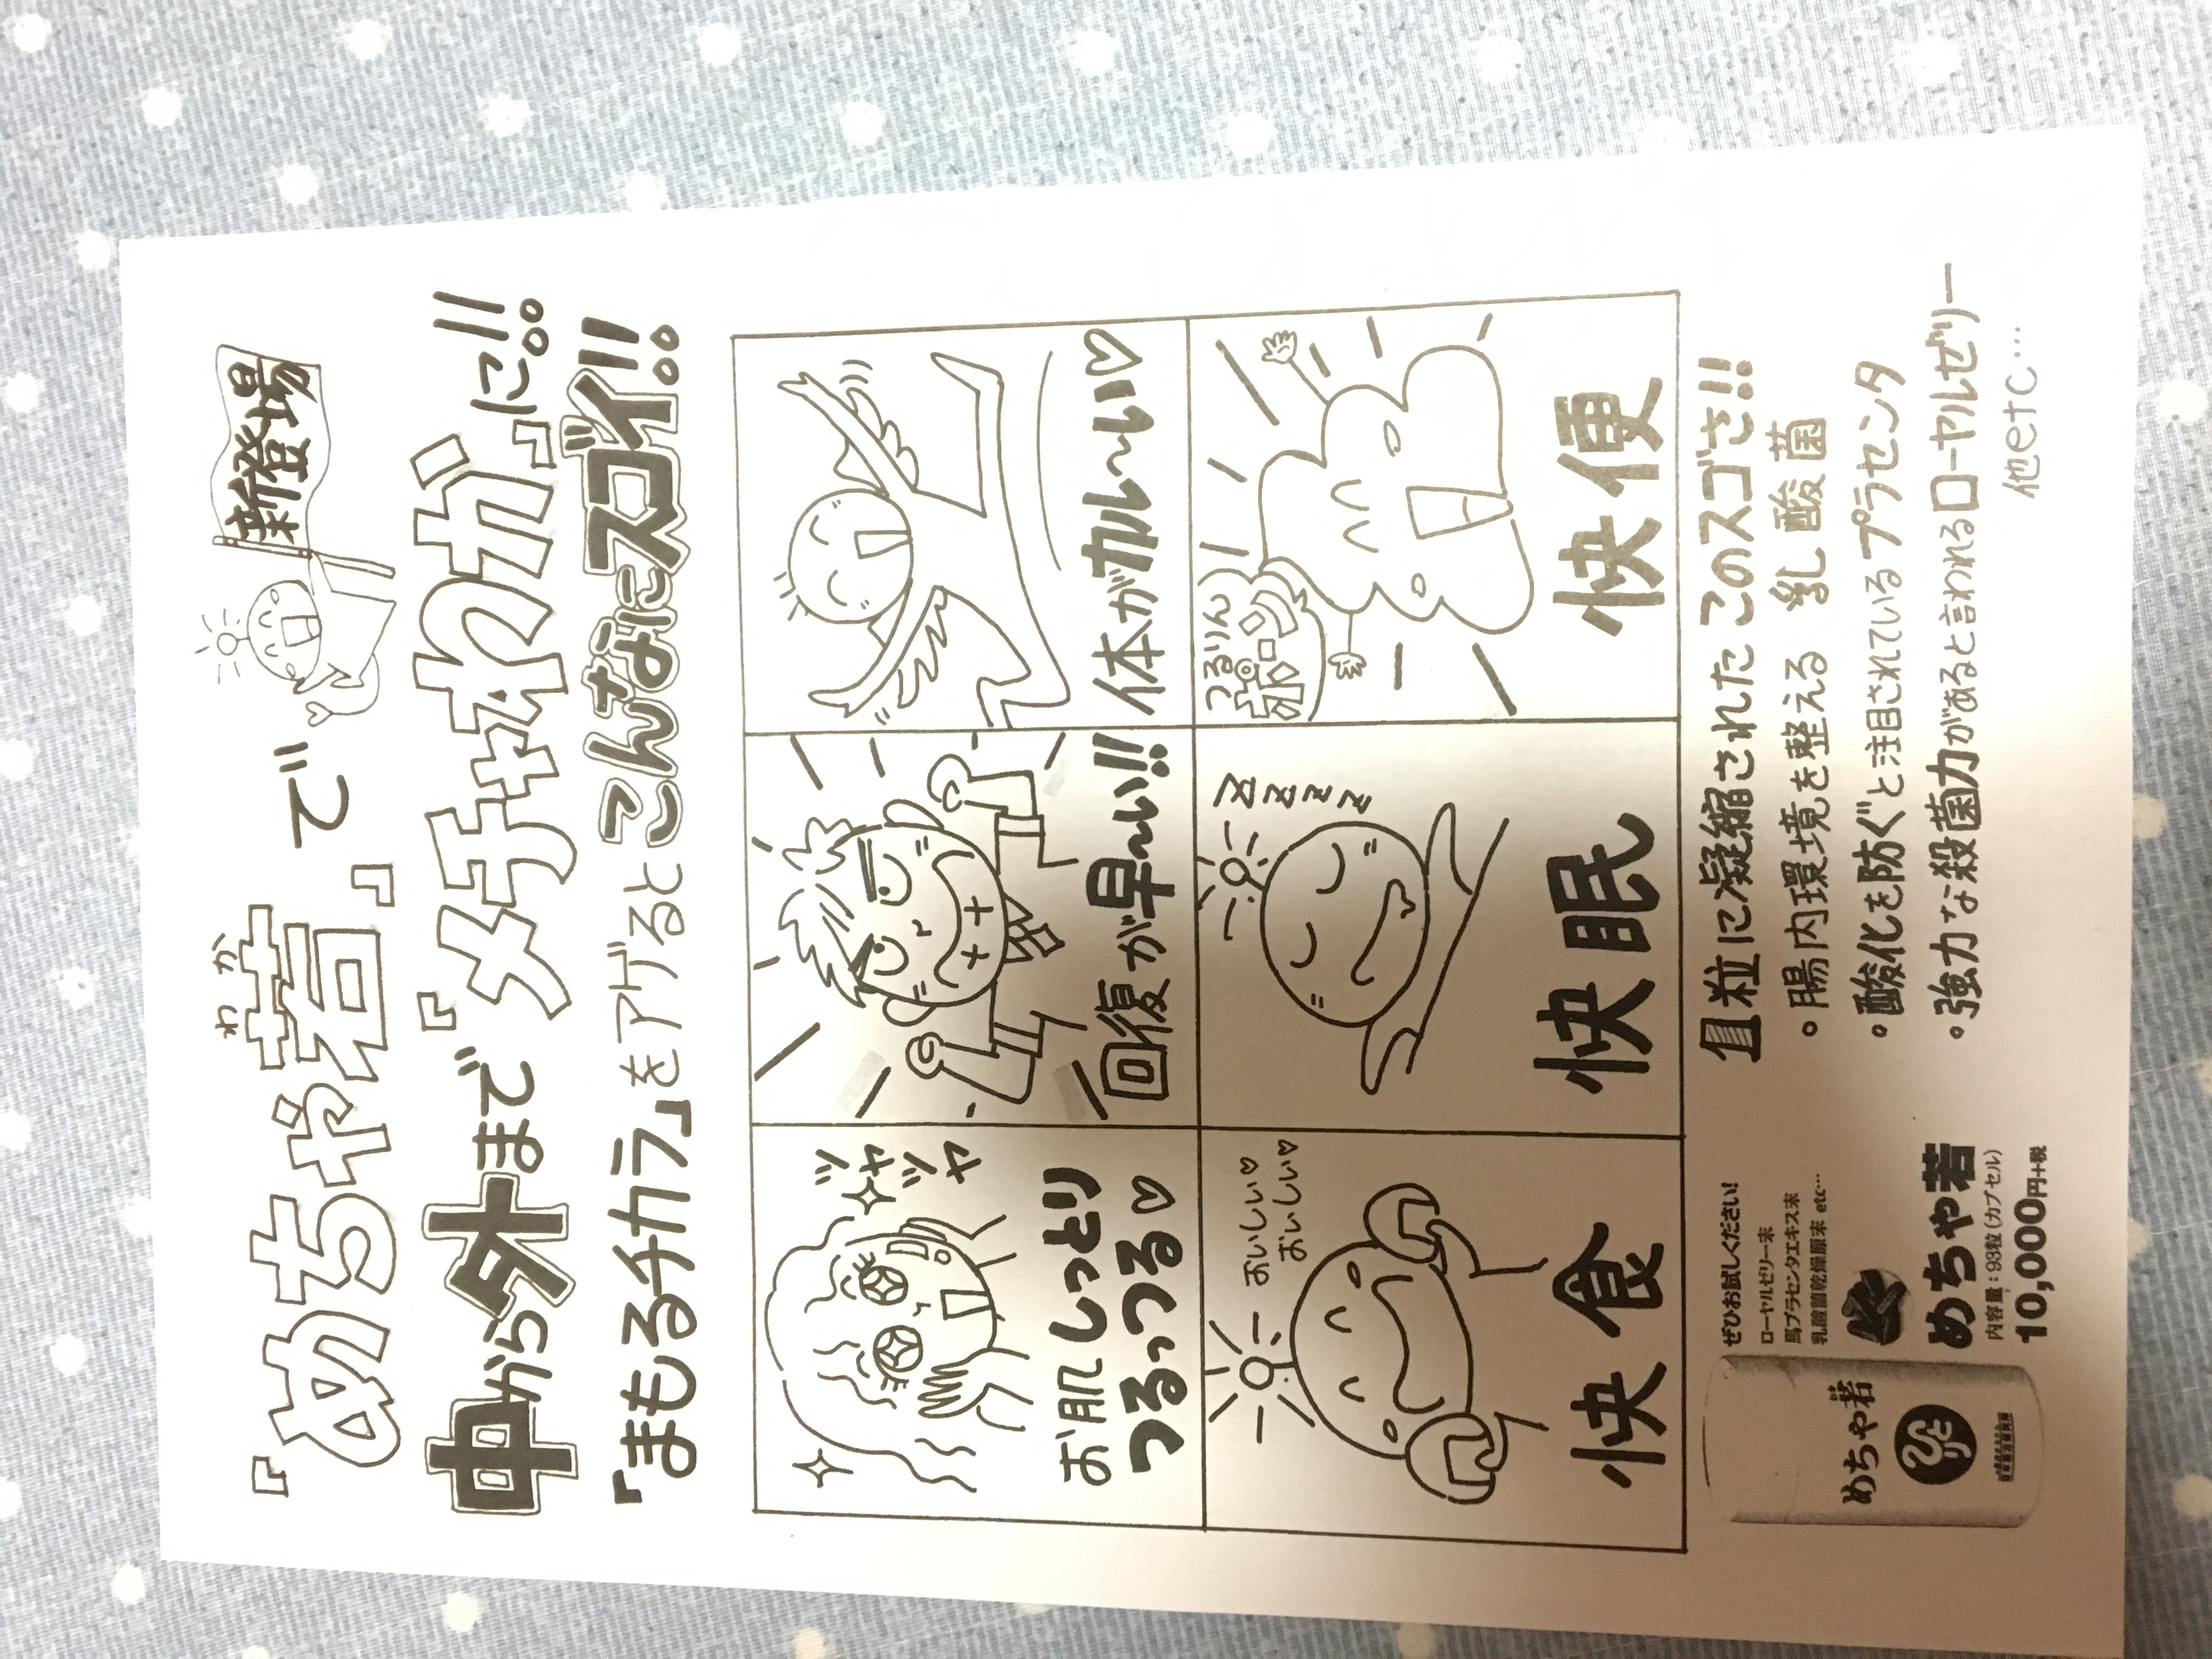 新登場
『めちゃ若』で
わか
中から外まで『メチャわか』に!!
「まもるチカラ」をアゲるとこんなにスゴイ!!
ツヤツヤ
お肌しっとり
つるっつる♡
回復が早〜い!!!
体がカル〜い♡
おいしい♡
おいしい♡
快食
zzzz
快眠
つるりん
ポン
快便
1粒に凝縮されたこのスゴさ!!
・腸内環境を整える乳酸菌
・酸化を防ぐと注目されているプラセンタ
・強力な殺菌力があると言われるローヤルゼリー
他etc…
ぜひお試しください!
ローヤルゼリー末
馬プラセンタエキス末
乳酸菌乾燥原末 etc…
めちゃ若
内容量：93粒(カプセル)
10,000円+税
めちゃ若